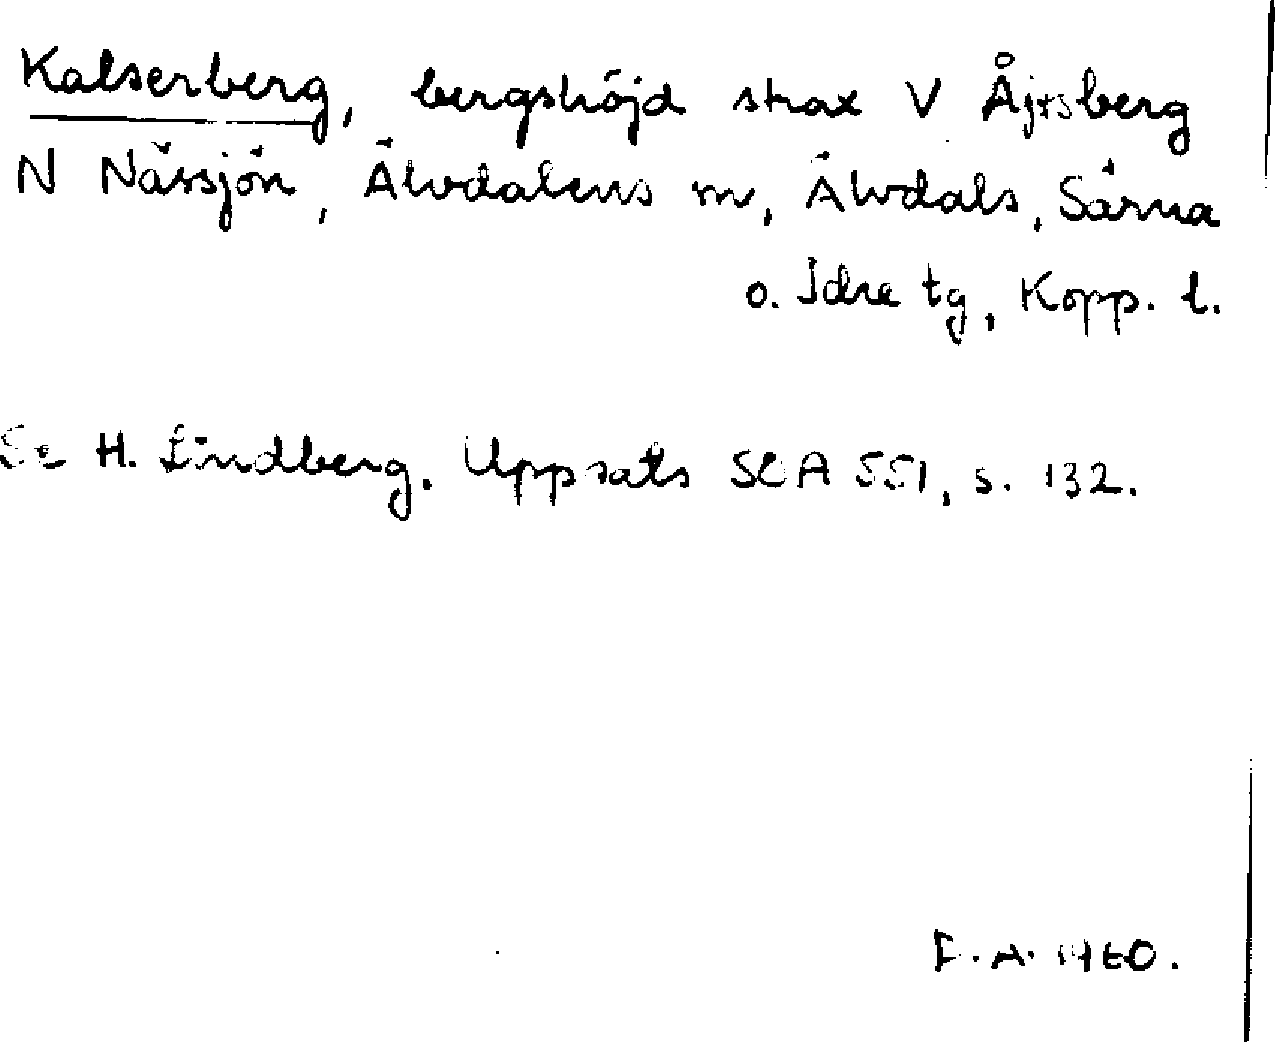 Kalserberg, bergshöjd strax V Åjtsberg
N Nässjön, Älvdalens sn, Älvdals, Särna
o. Idre tg, Kopp. l.
Se H. Lindberg. Uppsats SOA 551, s. 132.
E. A. 1960.